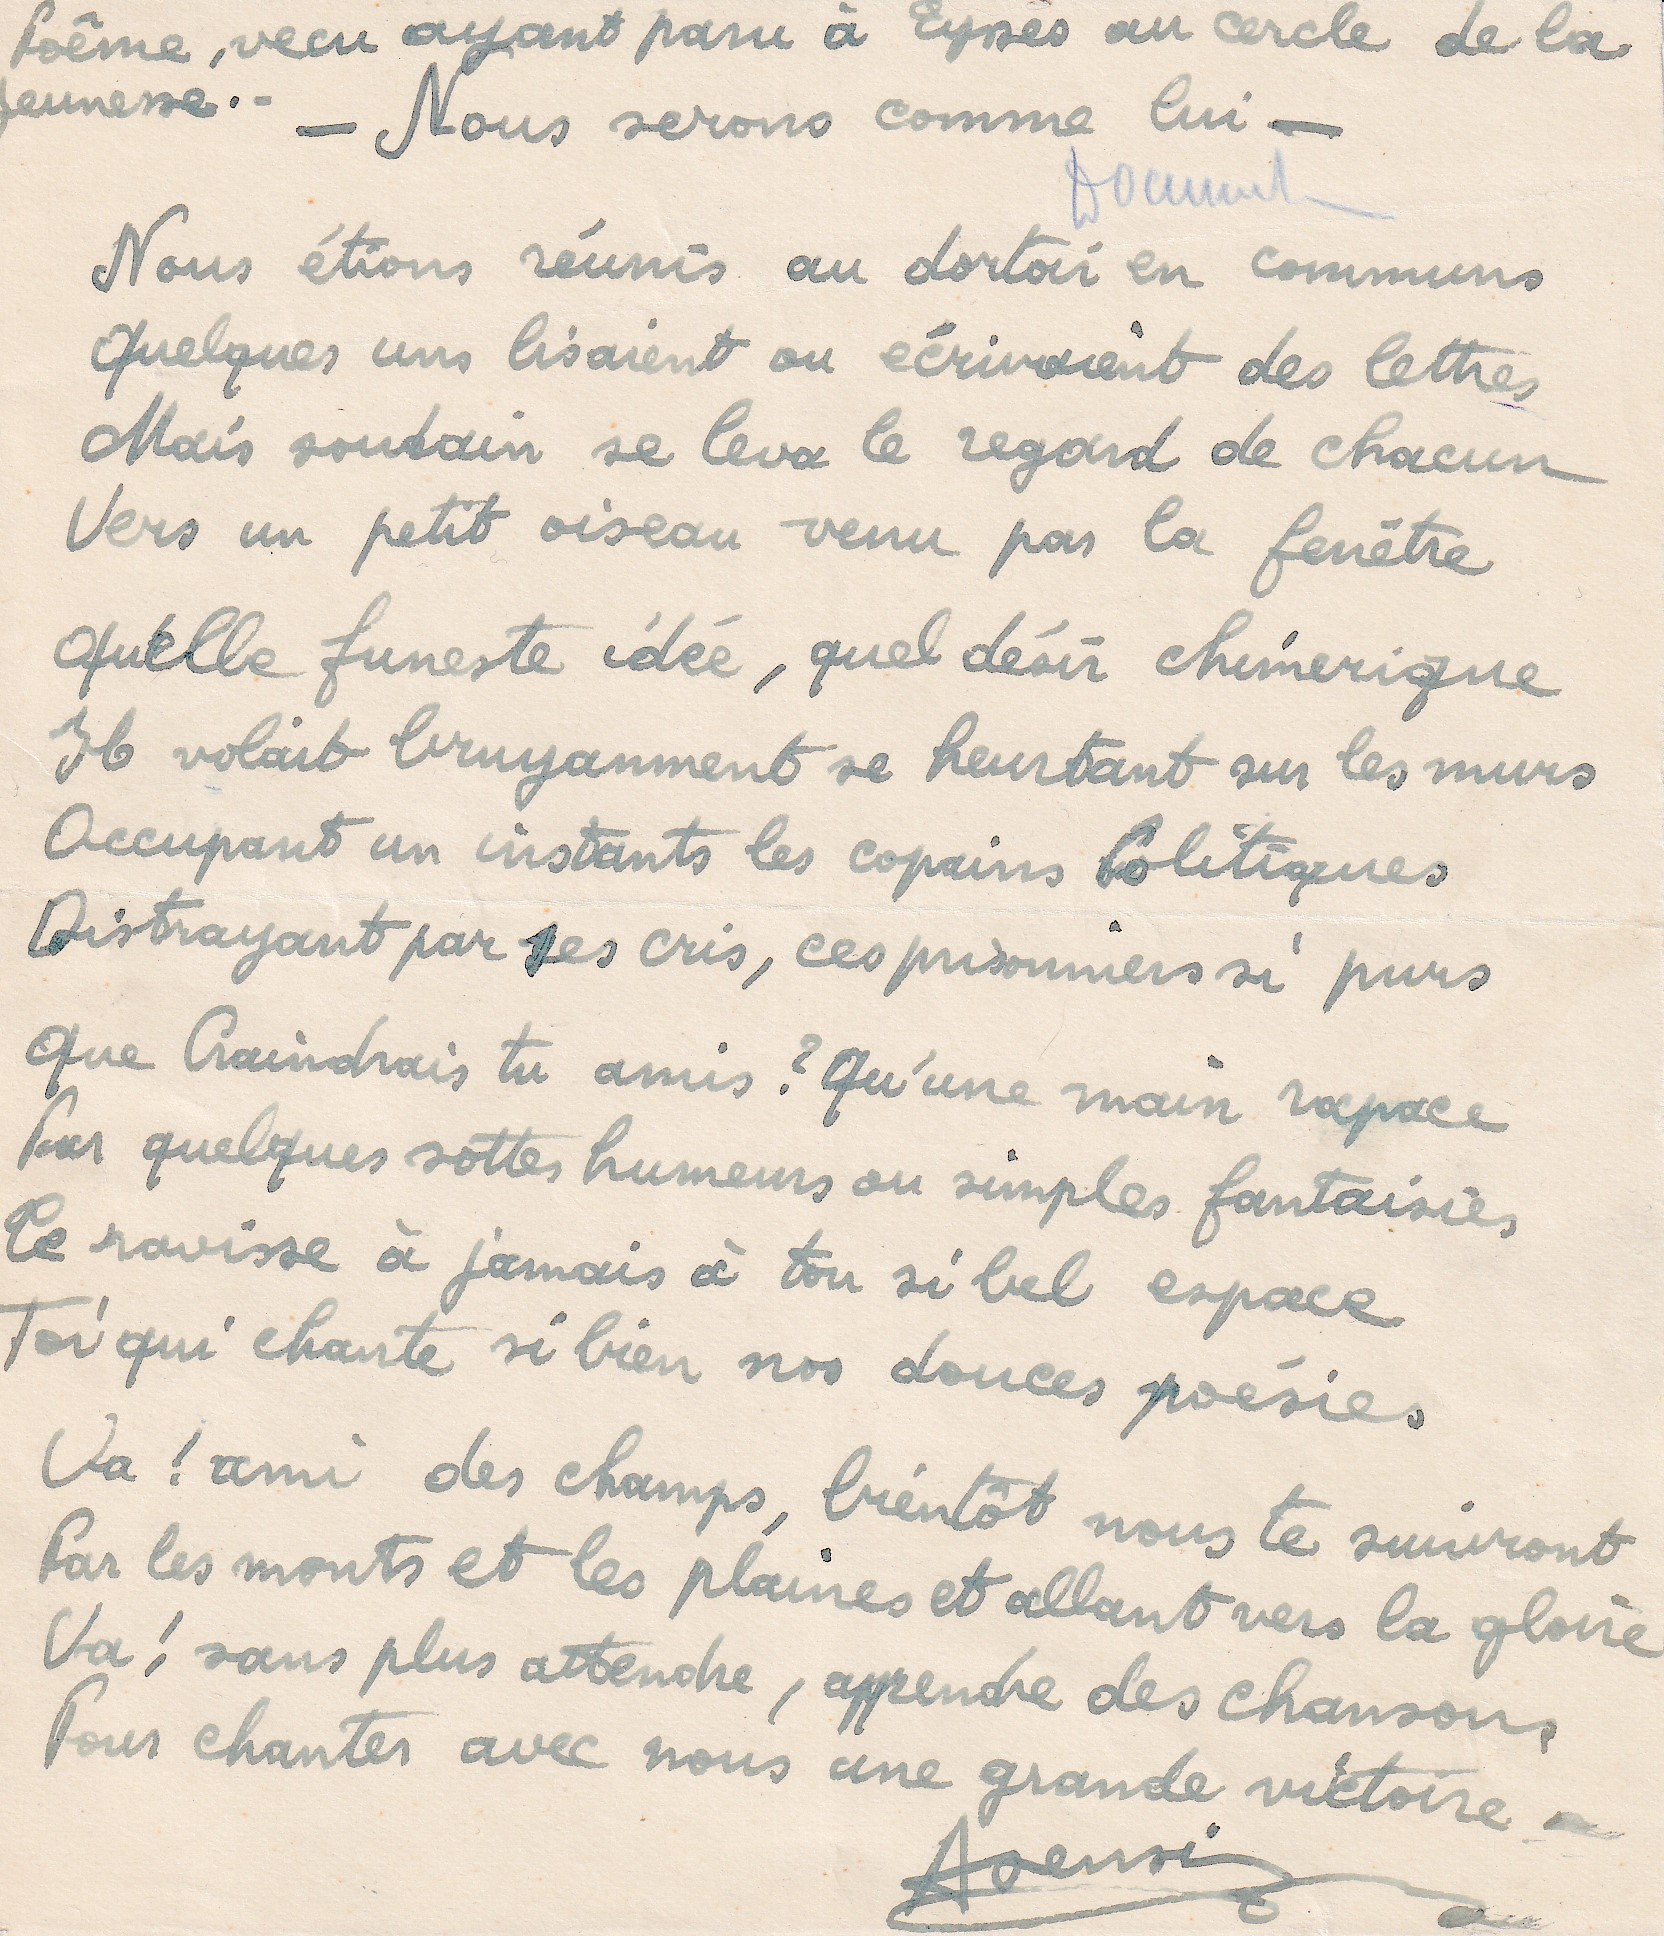 Poême, vecu ayant paru à Eysses au cercle de la
jeunesse.-
- Nous serons comme lui -
Document
Nous étions réunis au dortoir en communs
Quelques uns lisaient ou écrivaient des lettres
Mais soudain se leva le regard de chacun
Vers un petit oiseau venu par la fenêtre
Quelle funeste idée, quel désir chimerique
Il volait bruyanment se heurtant sur les murs
Occupant un instants les copains Politiques
Distrayant par ses cris, ces prisonniers si purs
Que Craindrais tu amis ? Qu'une main rapace
Par quelques sottes humeurs ou simples fantaisies
Te ravisse à jamais à ton si bel espace
Toi qui chante si bien nos douces poésies
Va ! ami des champs, bientôt nous te suivront
Par les monts et les plaines et allant vers la gloire
Va ! sans plus attendre, apprendre des chansons,
Pour chanter avec nous une grande victoire -
Asensi